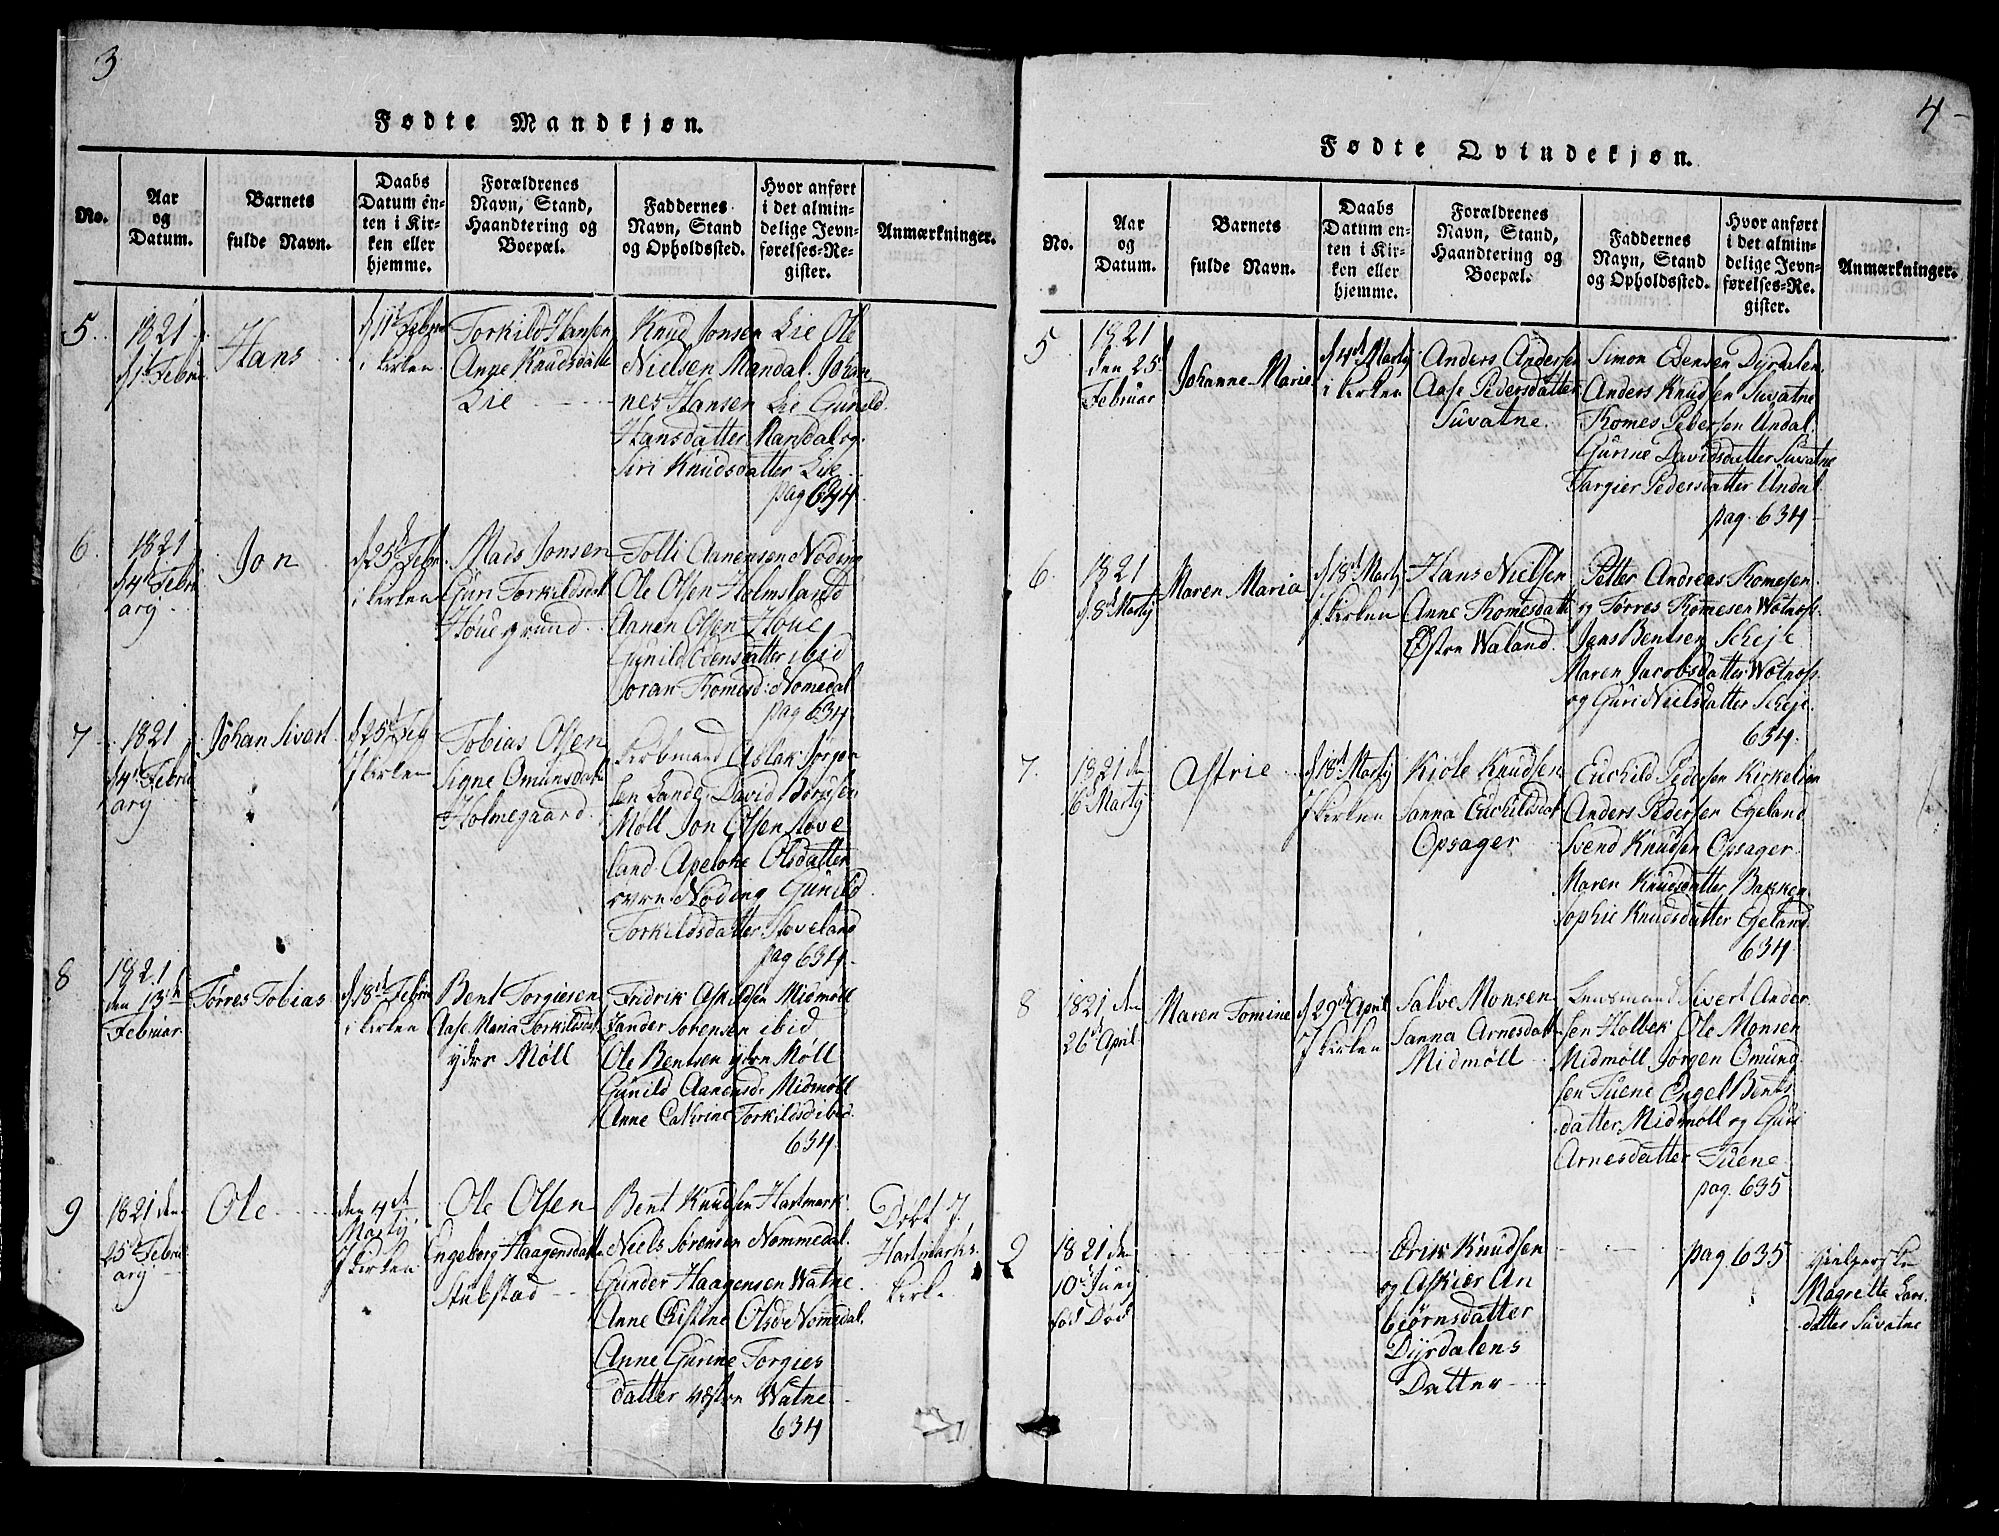 3
Fødte Mandkjøn.
No.
Aar
og
Datum.
Barnets
fulde Navn.
Daabs
Datum en-
ten i Kir-
ken eller
hjemme.
Forældrenes
Navn, Stand,
Haandtering og
Boepæl.
Faddernes
Navn, Stand
og Opholdssted.
Hvor anført
i det almin-
delige Jevn-
førelses-Re-
gister.
Anmærkninger.
5
1821
d 1t Febru
Hans
d 11t Febru
i Kirken
Torkild Hansen
Anne Knudsdatte
Lie
Knud Jonsen Lie Ole
Nielsen Mandal. Johan
nes Hansen Lie Gunild
Hansdatter Mandal og
Siri Knudsdatter Lie
pag 634
6.
1821
d 4t Febru
ary
Jon
d 25d Febr
i Kirken
Mads Jonsen
Guri Torkildsdt
Houegrund
Tolli Aanensen Noding
Ole Olsen Holmsland
Aanen Olsen Houe
Gunild Edensdatter ibid
Joran Thomesd: Nomedal
pag 634
7
1821
d 4t Febru
ary
Johan Sivert
d 25d Feb
J Kirken
Tobias Olsen
Signe Omunsdatte
Holmegaard
Aslak Jorgen
sen Lande, David Borusen
Moll Jon Olsen Stove
land Apelone Olsdatter
øvre Noding Gunild
Torkildsdatter Stoveland
pag 634
8
1821
den 13de
Februar.
Torres Tobias
d 18de Febru
i Kirken
Bent Torgiesen
Aase Maria Torkildsdt
ydre Møll
Fridrik Askildsen Midmøll
Zander Sorensen ibid
Ole Bentsen ydre Møll
Gunild Aanensd: Midmøll
Anne Cathrine Torkildsd ibid
634
9
1821 den
25d Febru
ary
Ole
den 4de
Marty
J Kirken
Ole Olsen
Engeborg Haagensdatte
Stubstad
Bent Knudsen Hartmark
Niels Sørensen Nommedal.
Gunder Haagensen Watne
Anne Cristine Olsde Nomedal.
Anne Gurine Torgies
datter vestre Watne
634
Døbt J
Hartmarks
Kirke
4
Fødte Qvindekjøn.
No.
Aar
og
Datum.
Barnets
fulde Navn.
Daabs
Datum en-
ten i Kir-
ken eller
hjemme.
Forældrenes
Navn, Stand,
Haandtering og
Boepæl.
Faddernes
Navn, Stand
og Opholdssted.
Hvor anført
i det almin-
delige Jevn-
førelses-Re-
gister.
Anmærkninger.
5
1821
den 25d
Februar
Johanne Marie
d 4de Marty
i Kirken
Anders Andersen
Aase Pedersdatter
Suvatne.
Simon Edensen Dyrdalen
Anders Knudsen Suvatne
Thomes Pedersen Undal.
Gurine Davidsdatter Suvatne
Targier Pedersdatter Undal
pag. 634
6.
1821
d. 8de Marty
Maren Maria
d 18de Marty
J Kirken
Hans Nielsen
Anne Thomesdatte
Østre Waland.
Petter Andreas Thomesen
og Torres Thomesen Wotnoss.
Jens Bentsen Scheje
Maren Jacobsdatter Wotnoss.
og Guri Nielsdatter Scheje.
634.
7.
1821 den
6d Marty
Astrie
d 18de Marty
J Kirken
Kiøle Knudsen
Sanna Euchildsdat
Opsager
Euchild Pedersen Kirkelien
Anders Pedersen Egeland
Svend Knudsen Opsager
Maren Knudsdatter Bakken
Sophie Knudsdatter Egeland
634
8
1821 den
26d April
Maren Tomine
d 29de April
J Kirken
Salve Monsen
Sanna Arnesdatt
Midmøll
Lensmand Sivert Ander
sen Holbek Ole Monsen
Midmøll Jorgen Omund
sen Tuene Engel Bents
datter Midmøll og Guri
Arnesdatter Tuene
pag. 635
9
1821 den
10d Juny
fød Død
Erik Knudsen
og Askier An
biørnsdatter
Dyrdalens
Datter
pag. 635
Magrette Lars
datter Suvatne